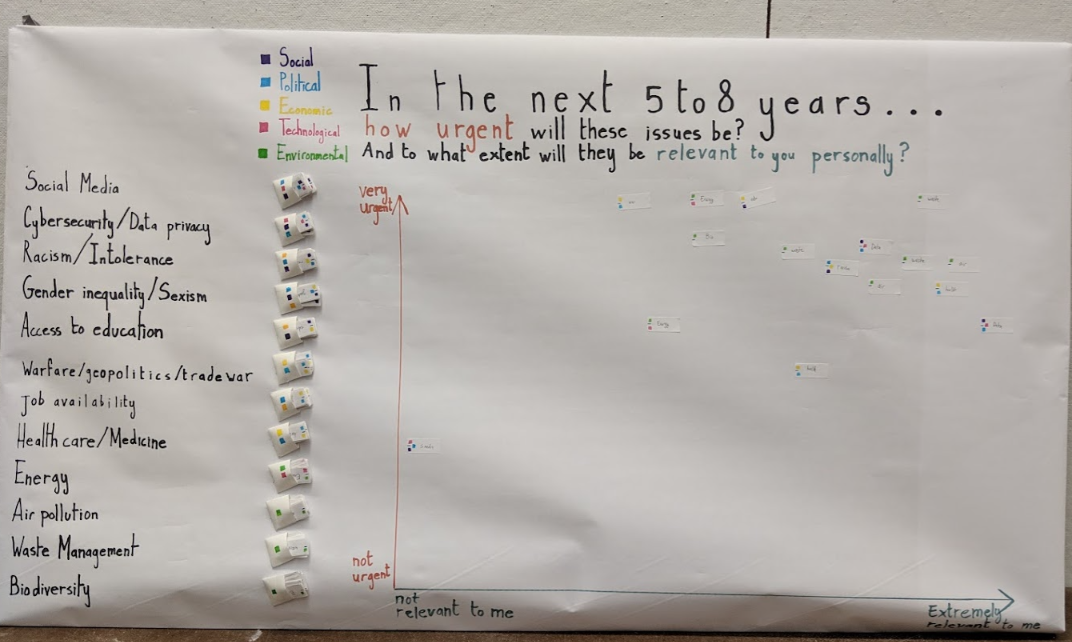 Social
Political
Economic
Technological
Environmental
In the next 5 to 8 years...
how urgent will these issues be?
And to what extent will they be relevant to you personally?
Social Media
Cybersecurity/Data privacy
Racism/Intolerance
Gender inequality/Sexism
Access to education
Warfare/geopolitics/trade war
Job availability
Health care/Medicine
Energy
Air pollution
Waste Management
Biodiversity
very
urgent
not
urgent
not
relevant to me
Extremely
relevant to me